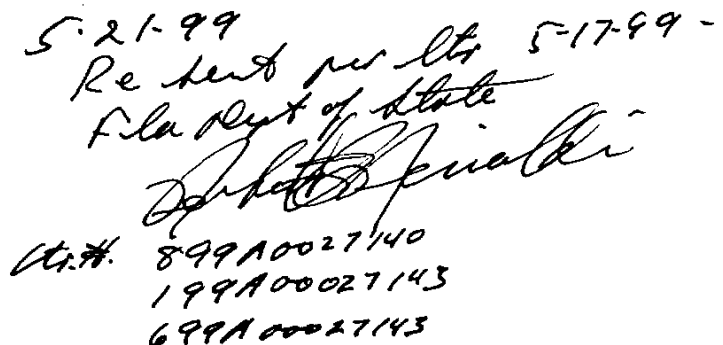 5-21-99
Re sent per ltr 5-17-99-
Fla Dept of State
Ltr.#. 899A00027140
199A00027143
699A00027143